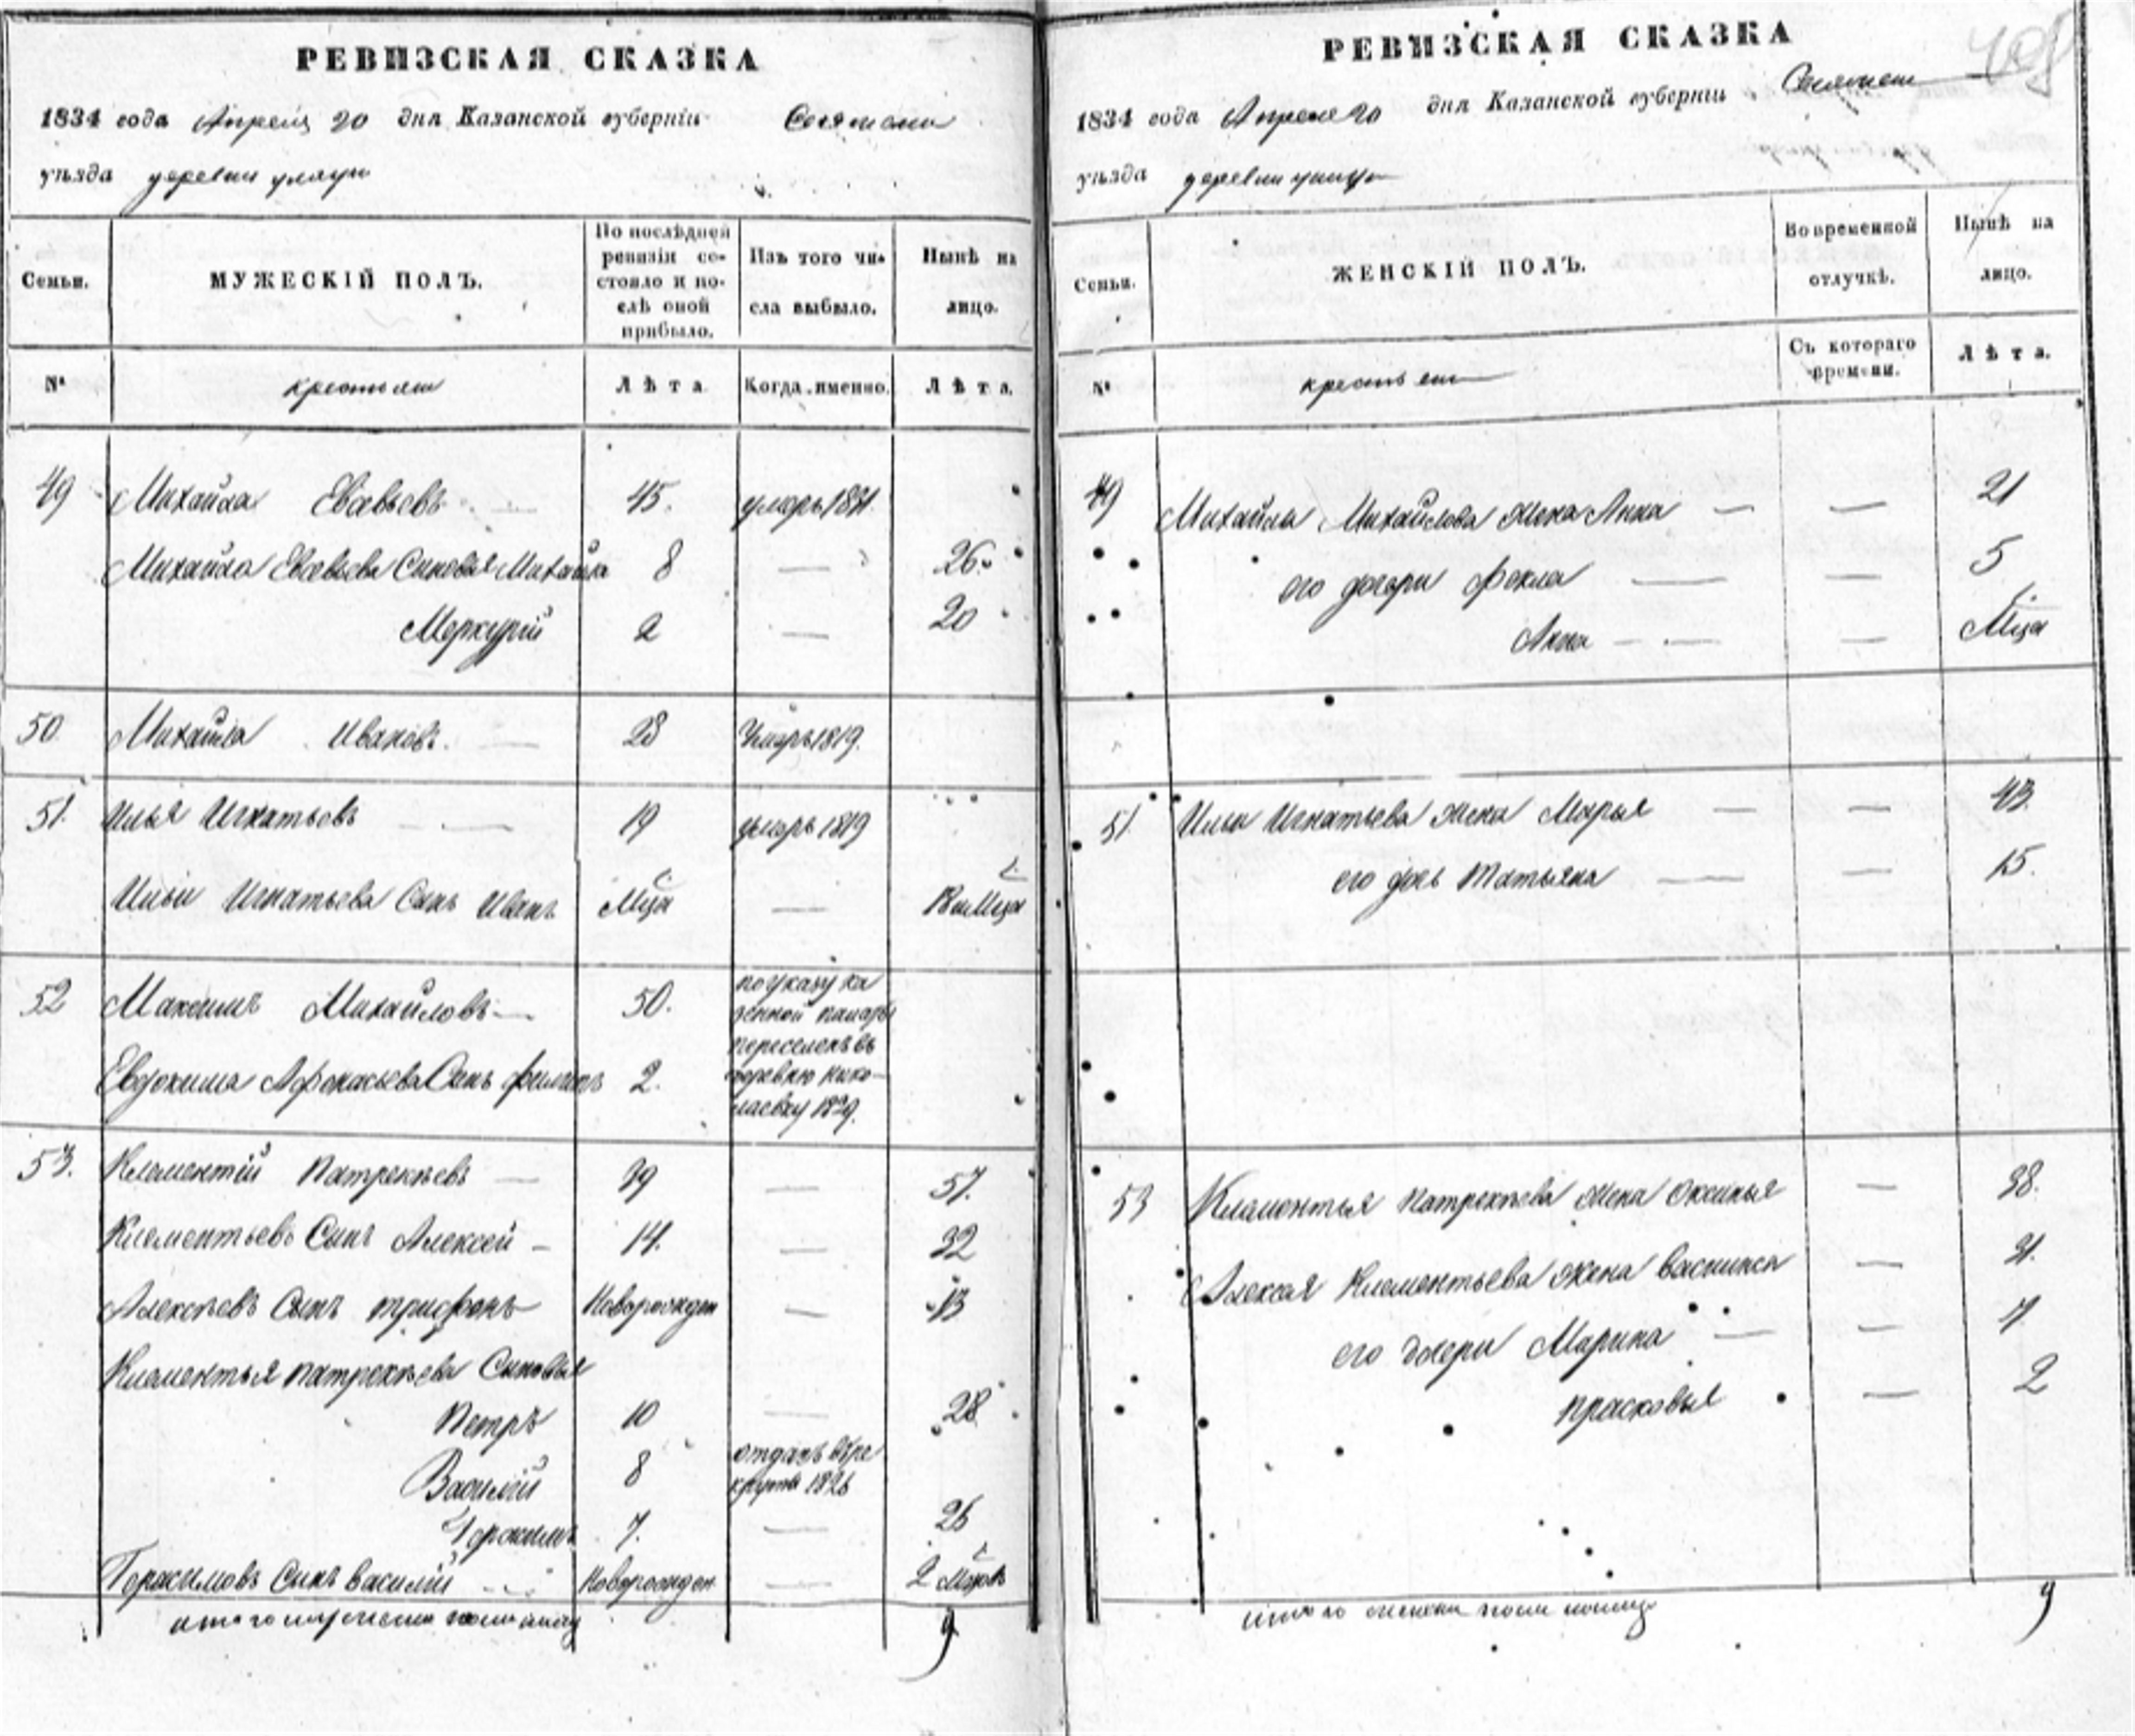 РЕВИЗСКАЯ СКАЗКА
1834 года Апреля 20 дня Казанской губерніи
уѣзда деревни
Семьи.
МУЖЕСКІЙ ПОЛЪ.
По послѣдней
ревизіи со-
стояло и по-
слѣ оной
прибыло.
Изъ того чи-
сла выбыло.
Нынѣ на
лицо.
№
крестьяне
Лѣта
Когда именно.
Лѣта.
49 Михайла Евсевьевъ 45. умеръ 1831.
Михайла Евсевьева Сыновья Михайла 8 — 26.
Меркурій 2 — 20
50. Михайла Ивановъ 28 Умеръ 1819.
51. Илья Игнатьевъ 19 умеръ 1819
Ильи Игнатьева Сынъ Иванъ Мца — 18 и Мца
52 Максимъ Михайловъ 50. по указу ка
зенной палаты
переселенъ въ
деревню Нико-
лаевку 1829.
Евдокима Афонасьева Сынъ Филипъ 2.
53. Клементій Патрекѣевъ 39 — 57.
Клементьевъ Сынъ Алексей 14. — 32
Алексѣевъ Сынъ Трифонъ Новорожден — 13
Клементья Патрекѣева Сыновья
Петръ 10 — 28
Василій 8 отданъ въ ре
круты 1826
Герасимъ 7. — 25
Герасимовъ Сынъ Василій Новорожден — 2 Мцовъ
итого мужеска пола на лицо 9
РЕВИЗСКАЯ СКАЗКА
1834 года Апреля 20 дня Казанской губерніи
уѣзда деревни
Семьи.
ЖЕНСКІЙ ПОЛЪ.
Во временной
отлучкѣ.
Нынѣ на
лицо.
№
крестьяне
Съ котораго
времени.
Лѣта.
49 Михайлы Михайлова жена Анна — — 21
его дочери Фекла — — 5
Анна — — Мца
51. Ильи Игнатьева жена Марья — — 43.
его дочь Татьяна — — 15.
53 Клементья Патрекѣева жена Оксинья — 38.
Алексея Клементьева жена Василиса — 31.
его дочери Марина — — 7
Прасковья — 2
итого женска пола на лицо 9